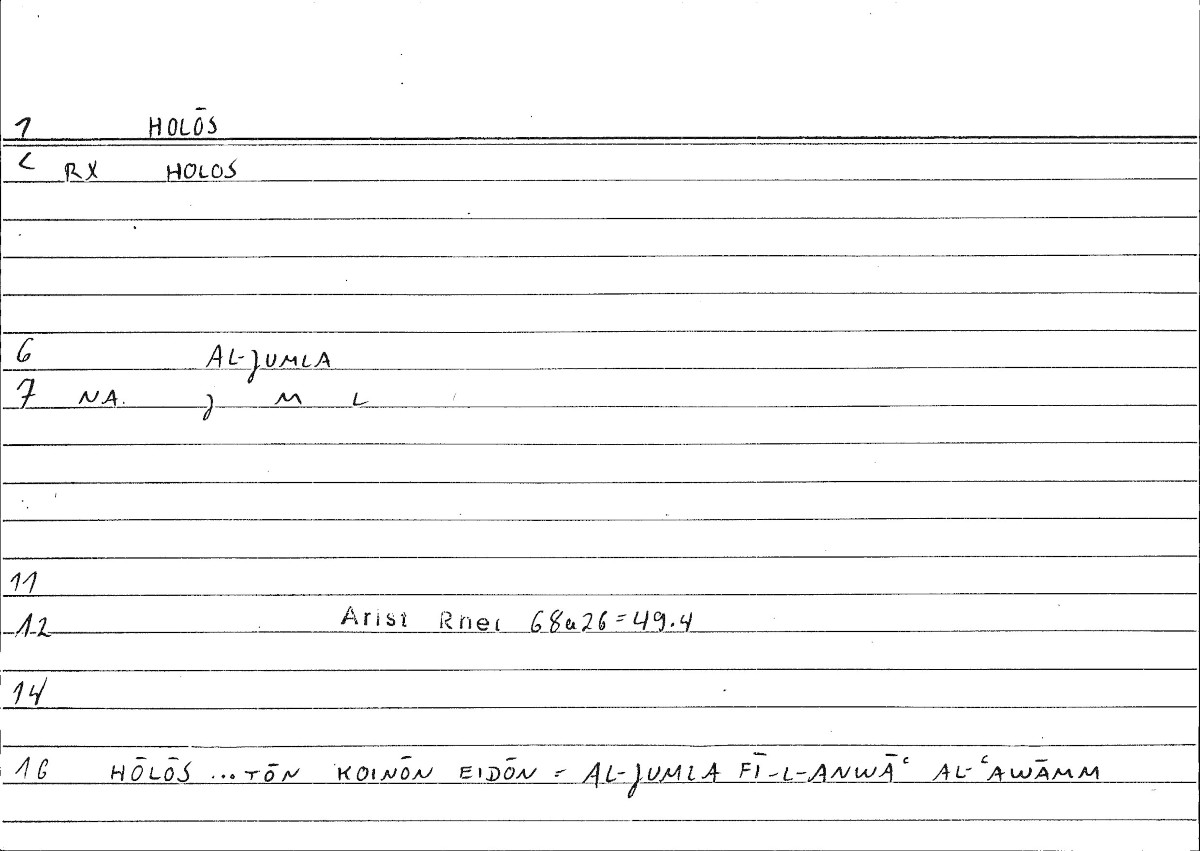 1 HOLŌS
2 RX HOLOS
6 AL-JUMLA
7 NA. J M L
11
12 Arist Rhet 68a26=49.4
14
16 HŌLŌS ...TŌN KOINŌN EIDŌN = AL-JUMLA FĪ-L-ANWĀʿ AL-ʿAWĀMM